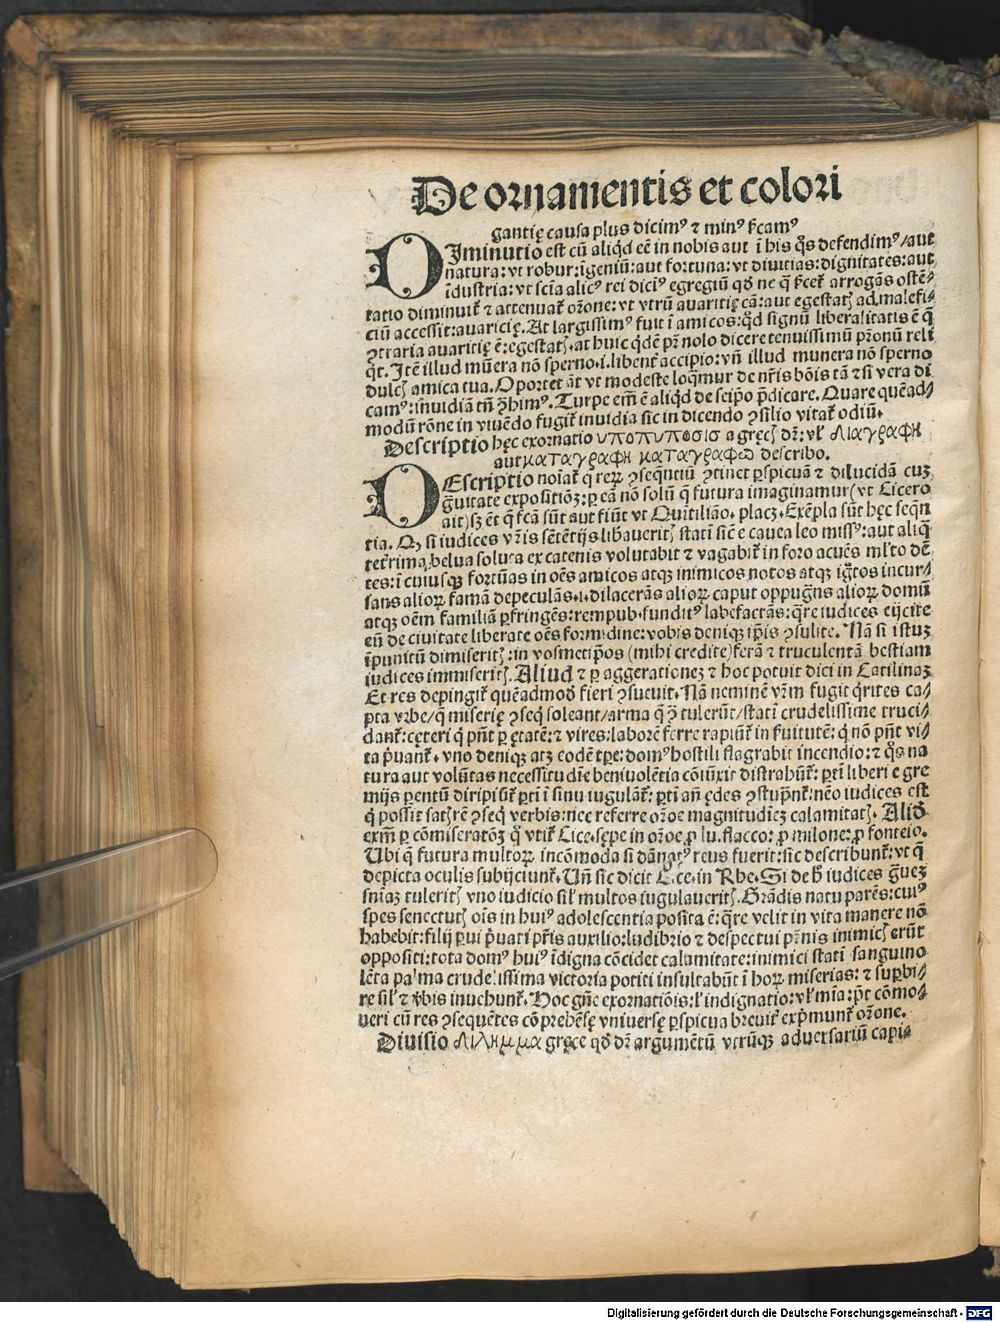 De ornamentis et colori
gantię causa plus dicimꝰ ⁊ minꝰ fcamꝰ
DIminutio est cū aliqd eē in nobis aut ī his qͦs defendimꝰ/aut
natura: vt robur: īgeniū: aut fortuna: vt diuitias: dignitates: aut
īdustria: vt scīa alicꝰ rei dicit egregiū qď ne q̄ fcet arrogās ostē-
tatio diminuit ⁊ attenuat oꝛōne: vt vtrū auaritię cā: aut egestatꝭ ad malefi-
ciū accessit: auaricię. At largissimꝰ fuit ī amicos: qď signū liberalitatis ē q̄
ꝯtraria auaritię ē: egestatꝭ. at huic qdē pr̄ nolo dicere tenuissimū pr̄onū reli
qt. Itē illud mūera nō sperno. i. libent accipio: vn̄ illud munera nō sperno
dulcꝭ amica tua. Oportet āt vt modeste loqmur de nr̄is bōis tā ⁊ si vera di
camꝰ: inuidiā tn̄ ꝓhimꝰ. Turpe em̄ ē aliqd de seipo p̄dicare. Quare quēad-
modū rōne in viuēdo fugit inuidia sic in dicendo ꝯsilio vitat odiū.
Descriptio hęc exornatio υποτυπωσισ a gręcꝭ dꝛ: vl διαγραφη
aut καταγραφη καταγραφω describo.
DEscriptio noīat q reꝝ ꝯseqntiū ꝯtinet ꝑspicuā ⁊ dilucidā cuꝫ
gͣuitate expositiōꝫ: ꝑ eā nō solū q̄ futura imaginamur (vt Cicero
ait) sꝫ ēt q̄ fcā sūt aut fiūt vt Quītiliāo. placꝫ. Exēpla sūt hęc seqn̄
tia. Qꝫ si iudices vr̄is sētētijs libaueritꝭ statī sic̄ e cauea leo missꝰ: aut aliq̄
teterrima belua soluta ex catenis volutabit ⁊ vagabit in foro acuēs dē
tes: ī cuiusqꝫ fortūas in oēs amicos atqꝫ inimicos notos atqꝫ igtos incur-
sans alioꝝ famā depeculās. dilacerās alioꝝ caput oppugͣns alioꝝ domū
atqꝫ oēm familiā ꝑfringēs: rempub. funditꝰ labefactās: qͣre iudices eijcite
eū de ciuitate liberate oēs formidine: vobis deniqꝫ ip̄is ꝯsulite. Nā si istuꝫ
īpunitū dimiseritꝭ: in vosmetip̄os (mihi credite) ferā ⁊ truculentā bestiam
iudices immiseritꝭ. Aliud ⁊ ꝑ aggerationeꝫ ⁊ hoc potuit dici in Catilinaꝫ
Et res depingit quēadmoď fieri ꝯsueuit. Nā neminē vr̄m fugit qͥrites ca-
pta vrbe/q̄ miserię ꝯseq̄ soleant/arma q̄ ꝯ tulerūt/statī crudelissime truci-
dant: cęteri q̄ pn̄t ꝑ ętatē: ⁊ vires: laborē ferre rapiūt in ẜuitutē: q̄ nō pn̄t vi-
ta pͥuant. vno deniqꝫ atqꝫ eodē tꝑe: domꝰ hostili flagrabit incendio: ⁊ qͦs na
tura aut volūtas necessitudīe beniuolētia cōiūxit distrahūt: ꝑtī liberi e gre
mijs ꝑentū diripiūt ꝑtī ī sinu iugulāt: ꝑtī an̄ ędes ꝯstup̄nt: nēo iudices est
q̄ possit satꝭ rē ꝯseq̄ verbis: nec referre oꝛōe magnitudīeꝫ calamitatꝭ. Aliď
exm̄ ꝑ cōmiseratōꝫ q̄ vtit Cice. sępe in oꝛōe ꝓ lu. flacco: ꝓ milone: ꝓ fonteio.
Ubi q̄ futura multoꝝ incōmoda si dānatꝰ reus fuerit: sic describunt: vt q̄
depicta oculis subijciunt. Un̄ sic dicit Cice. in Rhe. Si de h̄ iudices gͣueꝫ
sniaꝫ tuleritꝭ vno iudicio sil multos iugulaueritꝭ. Grādis natu parēs: cuiꝰ
spes senectutꝭ oīs in huiꝰ adolescentia posita ē: qͣre velit in vita manere nō
habebit: filij ꝑui pͥuati pr̄is auxilio: ludibrio ⁊ despectui pr̄nis inimicꝭ erūt
oppositi: tota domꝰ huiꝰ īdigna cōcidet calamitate: inimici statī sanguino
lēta palma crudelissima victoria potiti insultabūt ī hoꝝ miserias: ⁊ suꝑbi-
re sil ⁊ vbis inuehunt. Hoc gn̄e exornatiōis: l indignatio: vl mīa: pt cōmo-
ueri cū res ꝯsequētes cōprehēsę vniuersę ꝑspicua breuit exp̄munt oꝛōne.
Diuisio διλημμα gręce qď dꝛ argumētū vtrūqꝫ aduersariū capi-
Digitalisierung gefördert durch die Deutsche Forschungsgemeinschaft - DFG